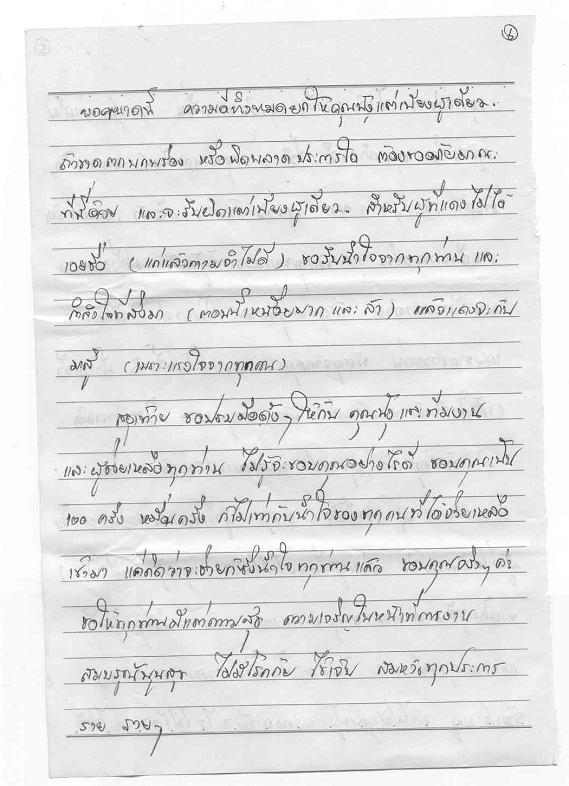 6
ความดีทั้งหมดยกให้คุณนังแต่เพียงผู้เดียว.
ถ้าขาดตกบกพร่อง หรือผิดพลาดประการใด ต้องขออภัยมาณะ
ที่นี้ด้วย และจะรับผิดแต่เพียงผู้เดียว. สำหรับผู้ที่แดงไม่ได้
เอยชื่อ (แก่แล้วความจำไม่ดี) ขอรับน้ำใจจากทุกท่าน และ
กำลังใจที่ส่งมา (ตอนนี้เหนื่อยมาก และ ล้า) แล้วแดงจะกับ
มาสู้ (เพราะแรงใจจากทุกคน)
สุดท้าย ขอปรบมือดังๆ ให้กับ คุณนังและทีมงาน
และผู้ช่วยเหลือทุกท่าน ไม่รู้จะขอบคุณอย่างไรดี ขอบคุณเป็น
100 ครั้ง หมื่นครั้ง ก็ไม่เท่ากับน้ำใจของทุกคนที่ได้ช่วยเหลือ
เข้ามา แค่คิดว่าจะช่วยก็ซึ้งน้ำใจทุกท่านแล้ว ขอบคุณจริงๆ ค่ะ
ขอให้ทุกท่านมีแต่ความสุข ความเจริญในหน้าที่การงาน
สมบรูณ์พูนสุข ไม่มีโรคภัย ไข้เจ็บ สมหวังทุกประการ
รวย รวยๆ